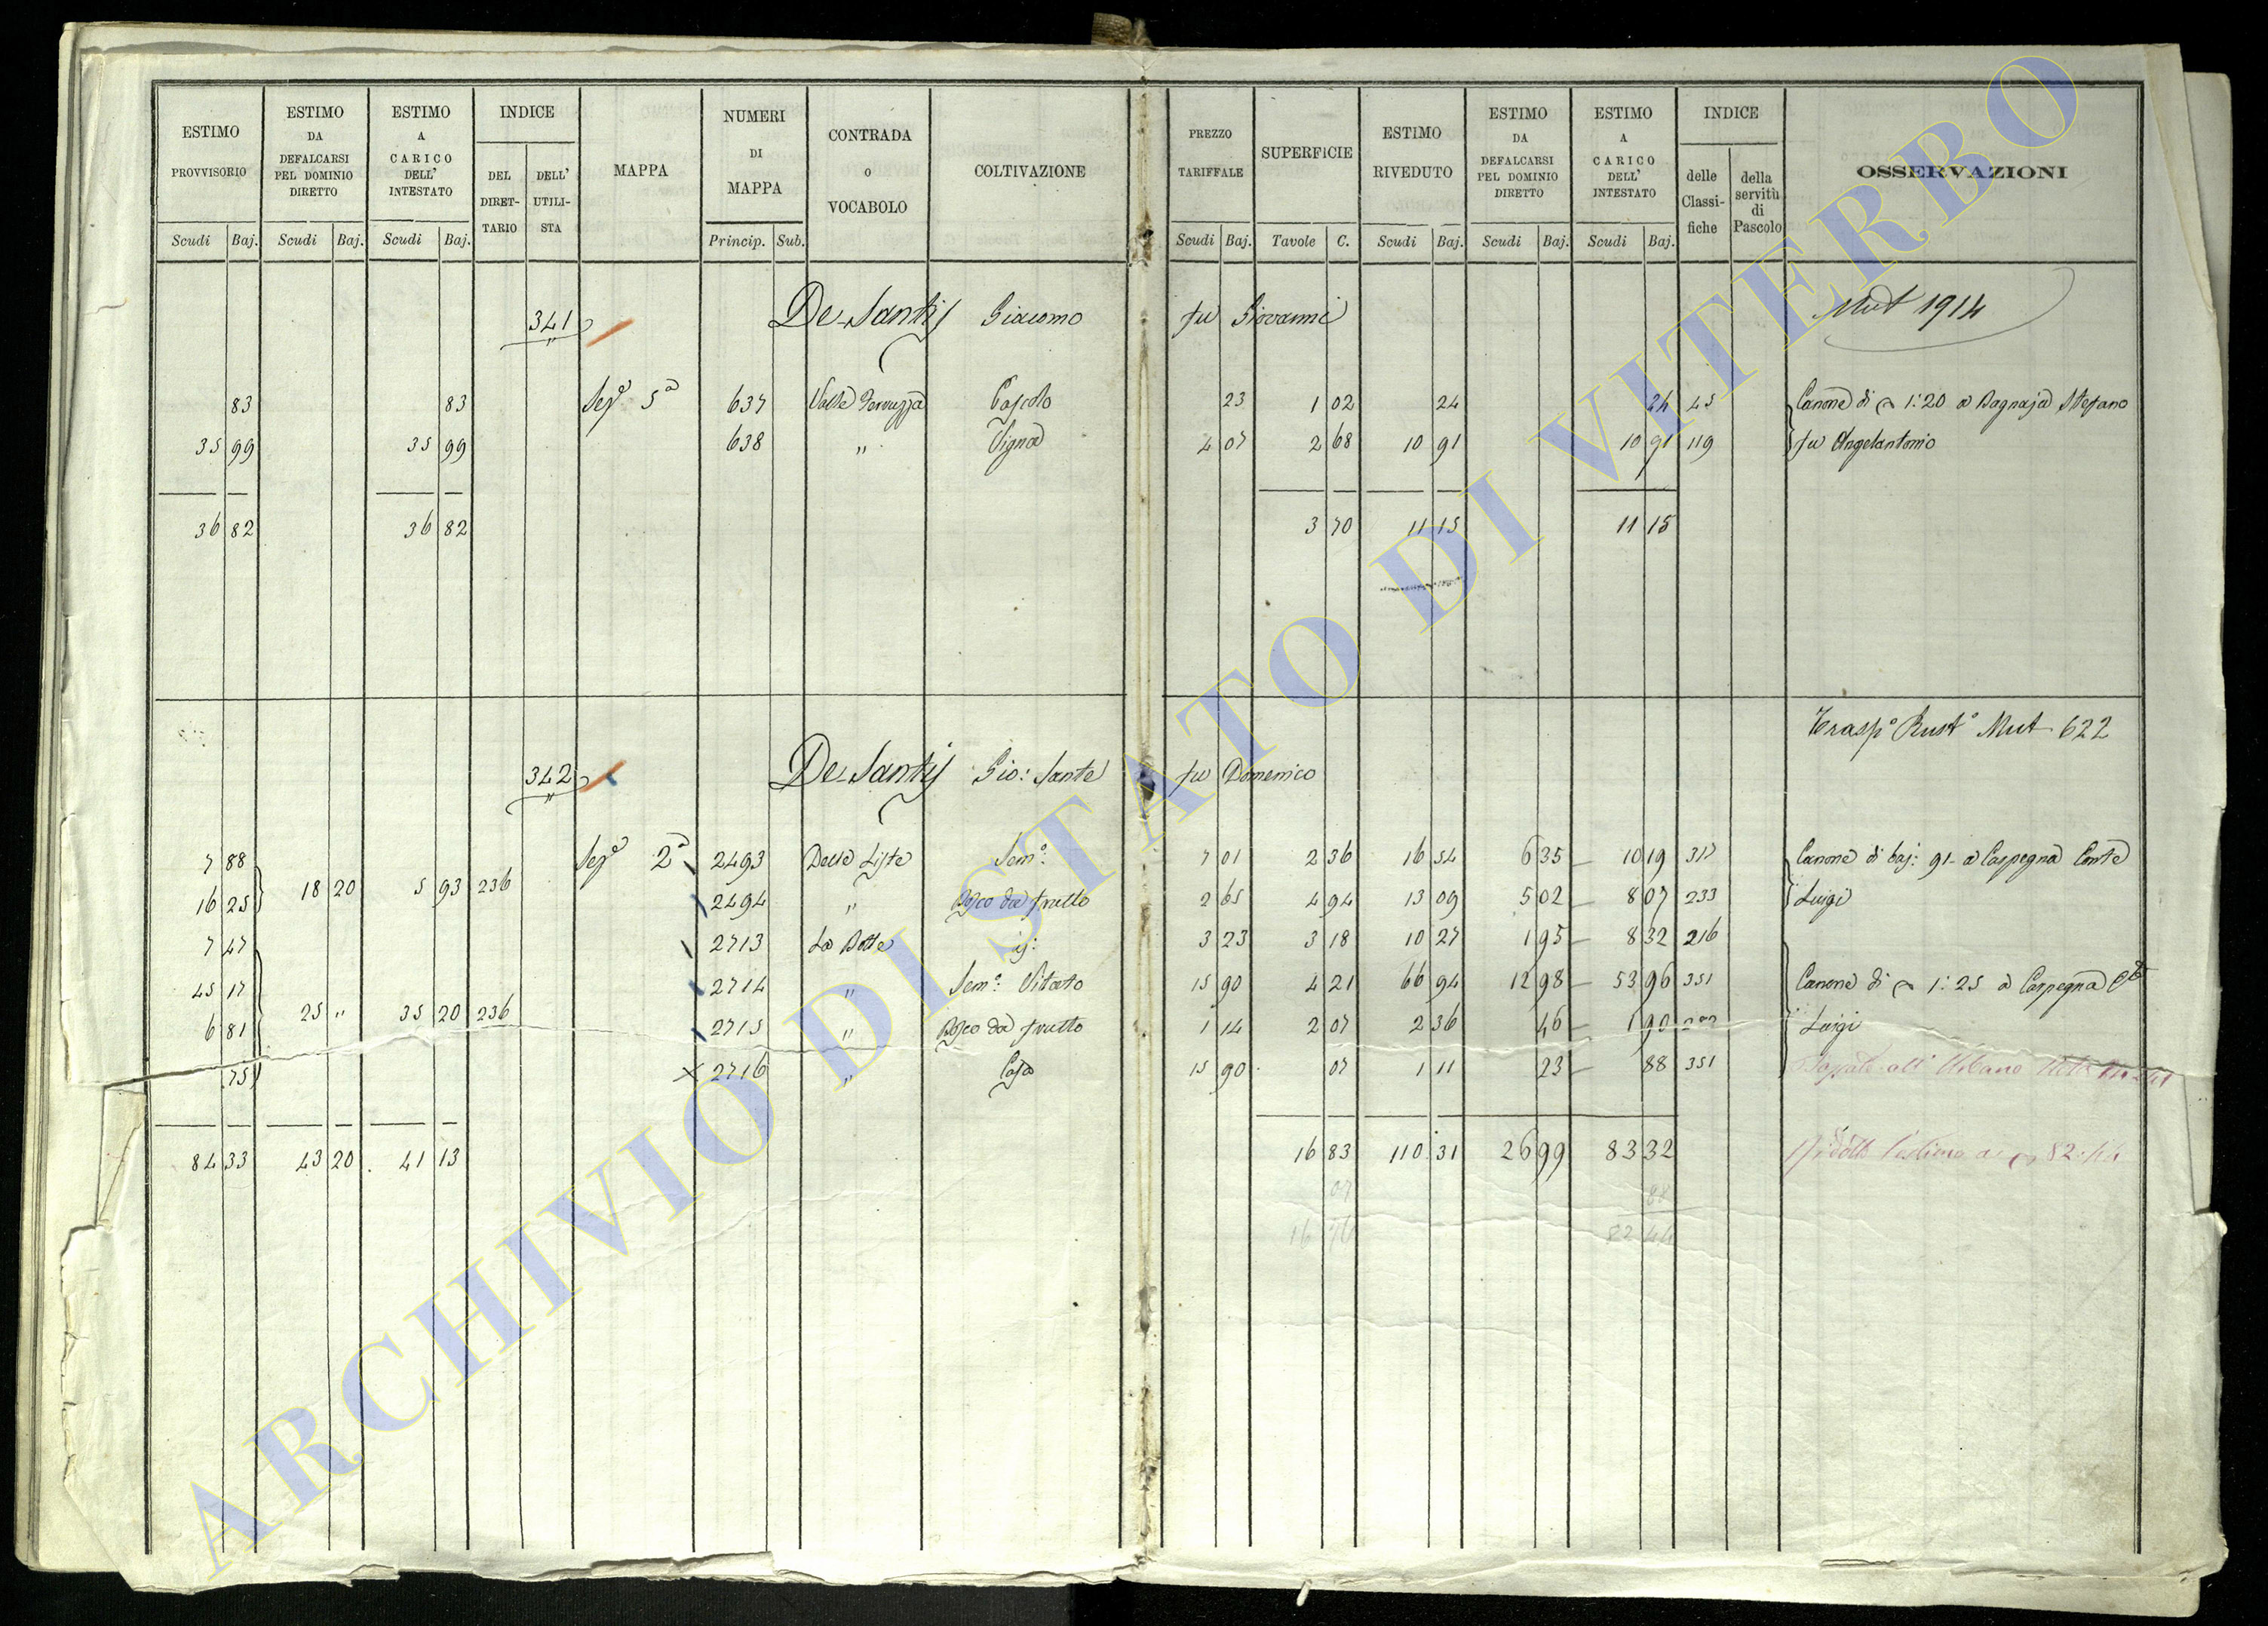 ESTIMO PROVVISORIO | ESTIMO DA DEFALCARSI PEL DOMINIO DIRETTO | ESTIMO A CARICO DELL' INTESTATO | INDICE | MAPPA | NUMERI DI MAPPA | CONTRADA o VOCABOLO | COLTIVAZIONE | PREZZO TARIFFALE | SUPERFICIE | ESTIMO RIVEDUTO | ESTIMO DA DEFALCARSI PEL DOMINIO DIRETTO | ESTIMO A CARICO DELL' INTESTATO | INDICE | OSSERVAZIONI
DEL DIRETTARIO | DELL' UTILISTA | delle Classifiche | della servitù di Pascolo
Scudi | Baj. | Scudi | Baj. | Scudi | Baj. | Princip. | Sub. | Scudi | Baj. | Tavole | C. | Scudi | Baj. | Scudi | Baj. | Scudi | Baj.
341 De-Santis Giacomo fu Giovanni Mut 1914
83 | 83 | Sezᵉ 5ª | 637 | Valle | Pascolo | 23 | 1 02 | 24 | 24 | 45 | Canone di 1:20 a Bagnaja Stefano
35 99 | 35 99 | 638 | " | Vigna | 4 07 | 2 68 | 10 91 | 10 91 | 119 | fu Angelantonio
36 82 | 36 82 | 3 70 | 11 15 | 11 15
Traspᵒ Rustᵒ Mut 622
342 De-Santis Gio: Sante fu Domenico
7 88 | Sezᵉ 2ª | 2493 | Delle Liste | Semᵒ: | 7 01 | 2 36 | 16 54 | 6 35 | 10 19 | 317 | Canone di baj: 91 a Carpegna Conte
16 25 | 18 20 | 5 93 | 236 | 2494 | " | Bosco da frutto | 2 65 | 4 94 | 13 09 | 5 02 | 8 07 | 233 | Luigi
7 47 | 2713 | La Botte | id: | 3 23 | 3 18 | 10 27 | 1 95 | 8 32 | 216
45 17 | 2714 | " | Semᵒ: Vitato | 15 90 | 4 21 | 66 94 | 12 98 | 53 96 | 351 | Canone di 1:25 a Carpegna Cᵗᵉ
6 81 | 25 " | 35 20 | 236 | 2715 | " | Bosco da frutto | 1 14 | 2 07 | 2 36 | 46 | 1 90 | Luigi
75 | 2716 | " | Casa | 15 90 | 07 | 1 11 | 23 | 88 | 351 | Passato all' Urbano
84 33 | 43 20 | 41 13 | 16 83 | 110 31 | 26 99 | 83 32 | Ridotto l'estimo a 82:44
07 | 88
16 76 | 82 44
ARCHIVIO DI STATO DI VITERBO